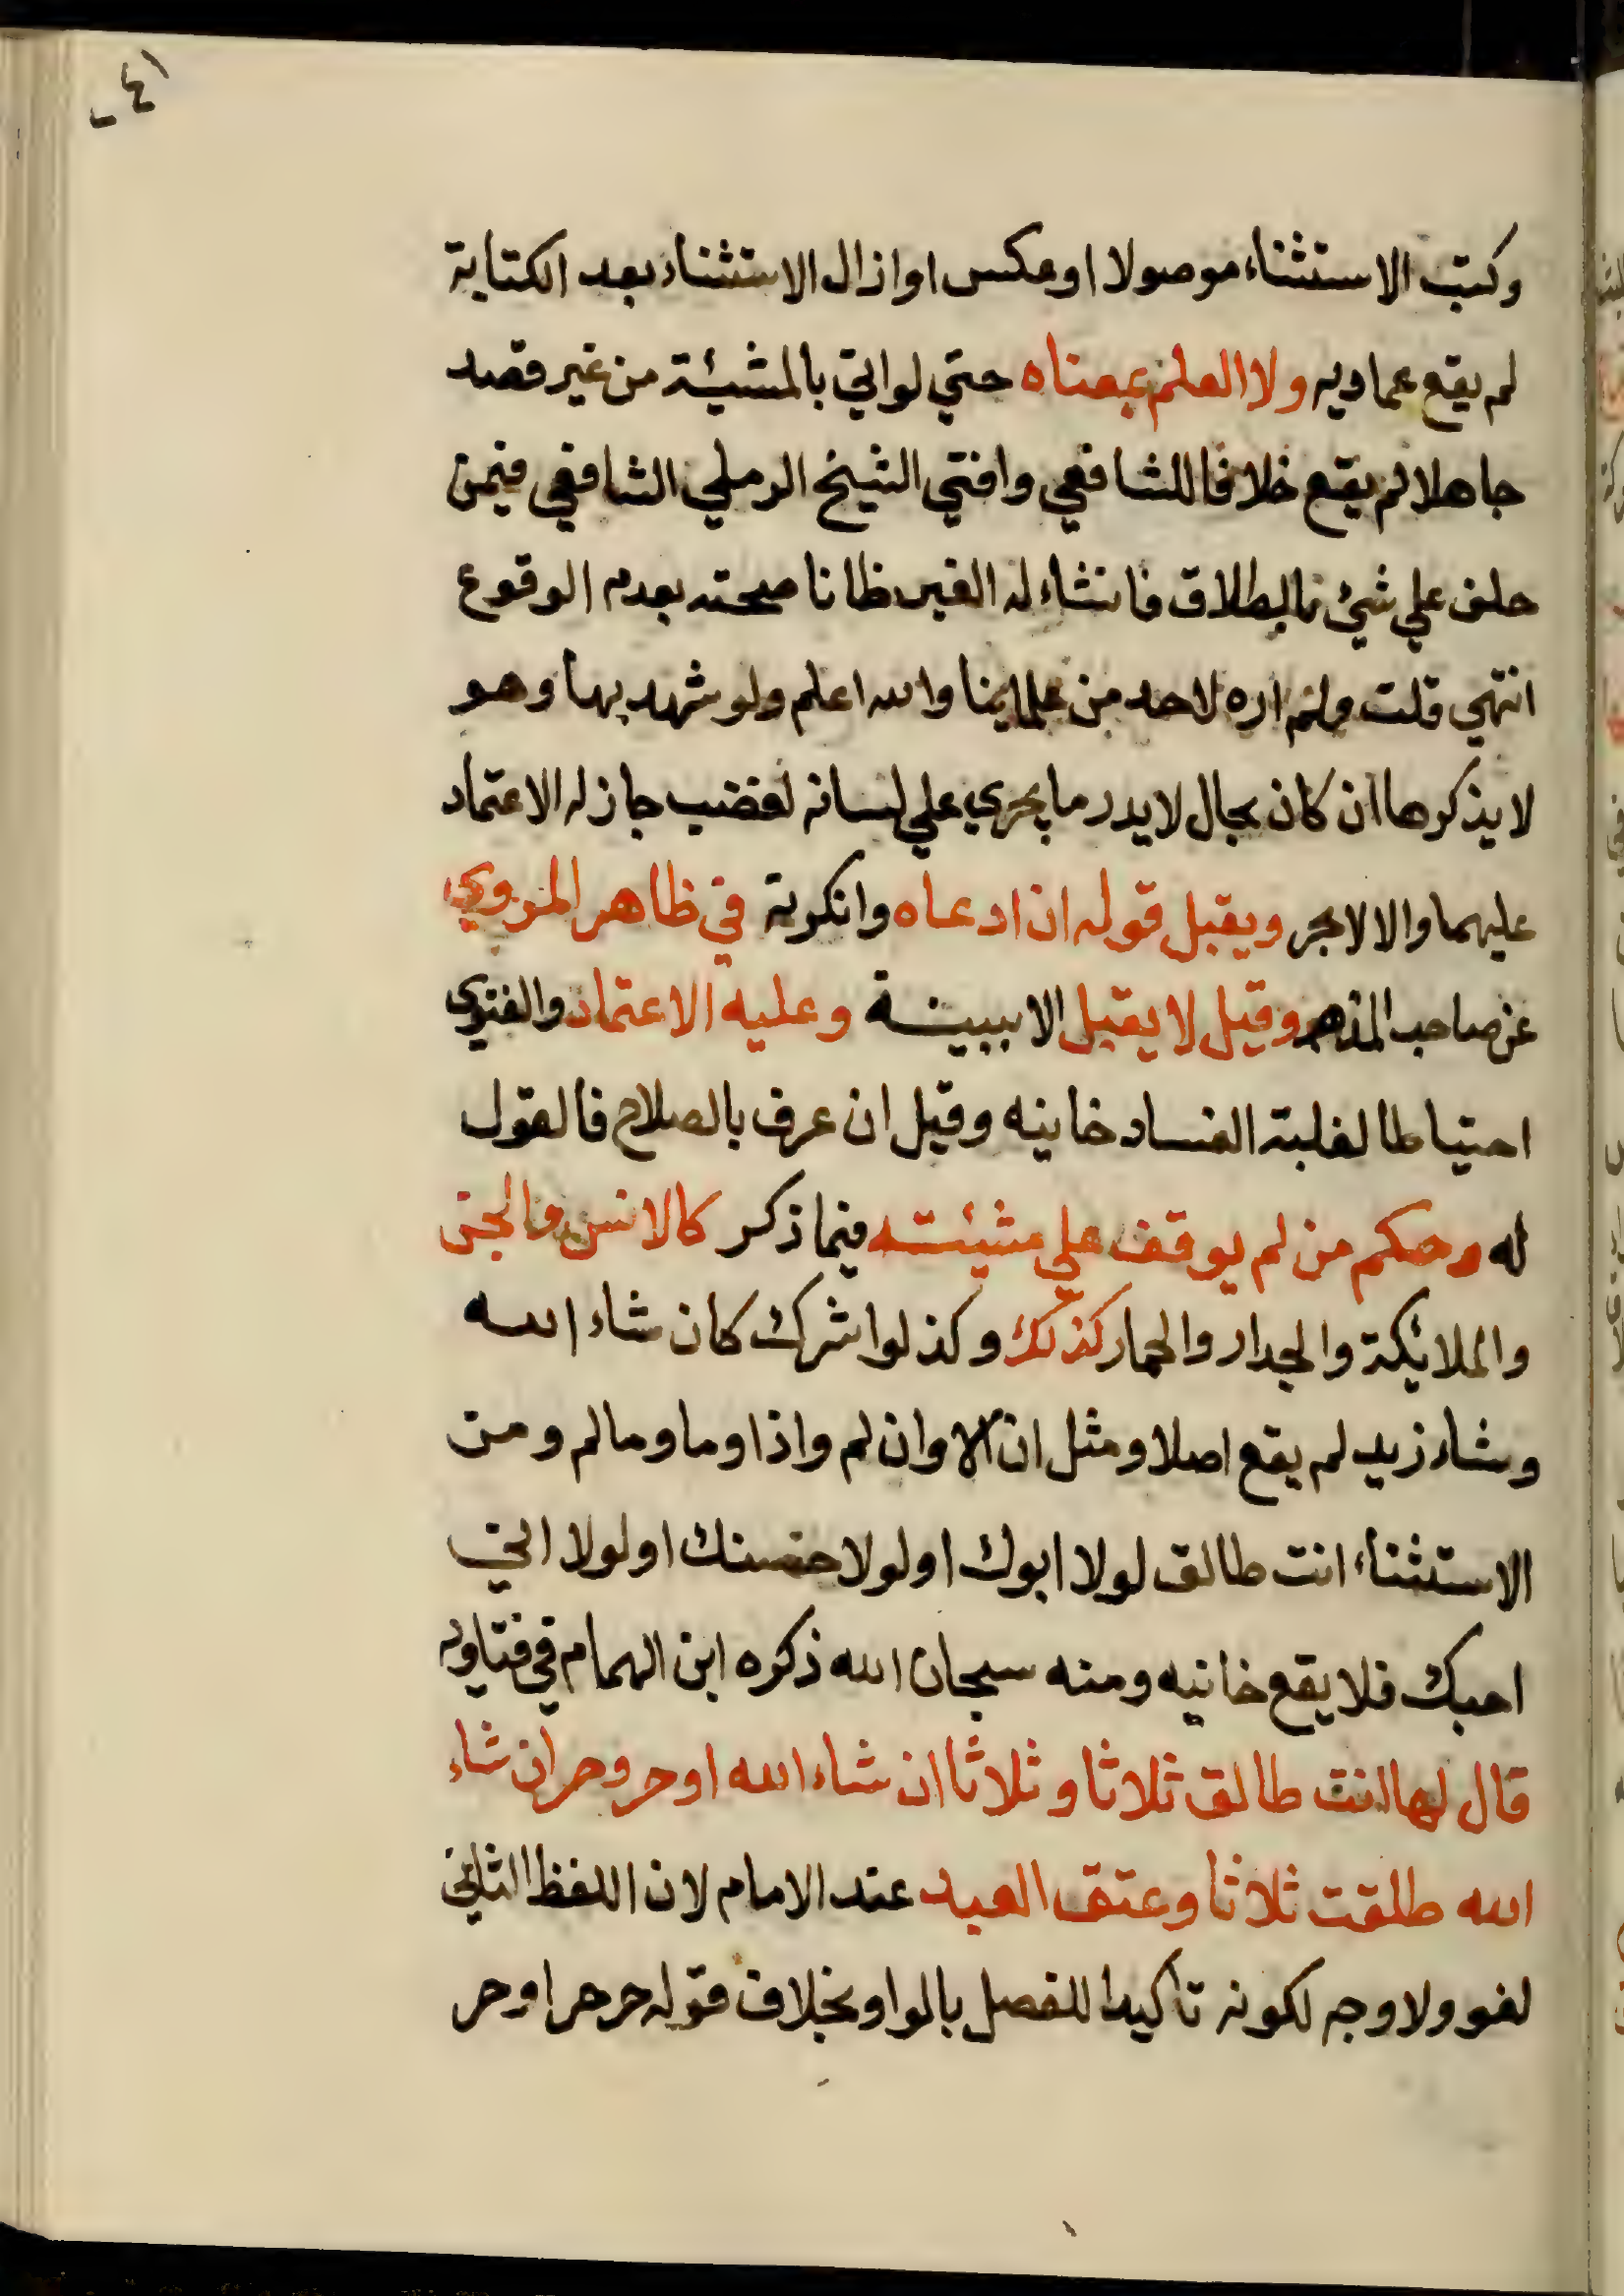 وكتب الاستثناء موصولا او عكس او ازال الاستثناء بعد الكتابة
لم يقع عماديه ولا العلم بمعناه حتي لو اتي بالمشيئة من غير قصد
جاهلا لم يقع خلافا للشافعي وافتي الشيخ الرملي الشافعي فيمن
حلف علي شئ بالطلاق فانشاء له الغير ظانا صحته بعدم الوقوع
انتهي قلت ولم اره لاحد من علماينا والله اعلم ولو شهد بها وهو
لا يذكرها ان كان بحال لا يدر ما يجري علي لسانه لغضب جاز له الاعتماد
عليهما والا لا بحر ويقبل قوله ان ادعاه وانكرته في ظاهر المروي
عن صاحب المذهب وقيل لا يقبل الا ببينة وعليه الاعتماد والفتوي
احتياطا لغلبة الفساد خانيه وقيل ان عرف بالصلاح فالقول
له وحكم من لم يوقف علي مشيئته فيما ذكر كالانس والجن
والملائكة والجدار والحمار كذلك وكذ لو اشرك كان شاء الله
وشاء زيد لم يقع اصلا ومثل ان الا وان لم واذا وما وما لم ومن
الاستثناء انت طالق لولا ابوك او لولا حسنك او لولا اني
احبك فلا يقع خانيه ومنه سبحان الله ذكره ابن الهمام في فتاويه
قال لها انت طالق ثلاثا وثلاثا ان شاء الله او حر وحر ان شاء
الله طلقت ثلاثا وعتق العبد عند الامام لان اللفظ الثاني
لغو ولا وجه لكونه تاكيدا للفصل بالواو بخلاف قوله حر حر او حر